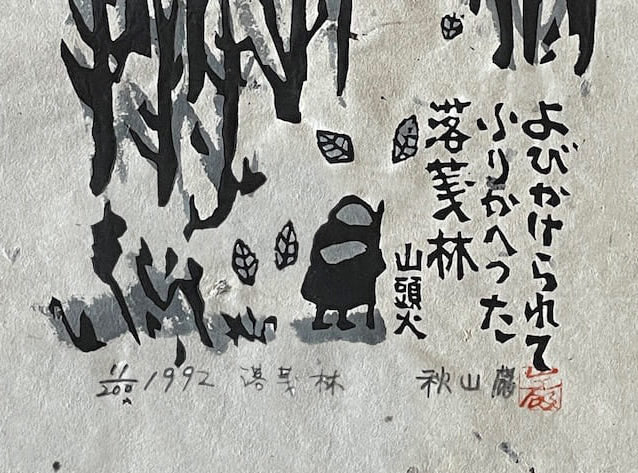 よびかけられて
ふりかへった
落葉林
山頭火
11/200 1992 落葉林 秋山巌